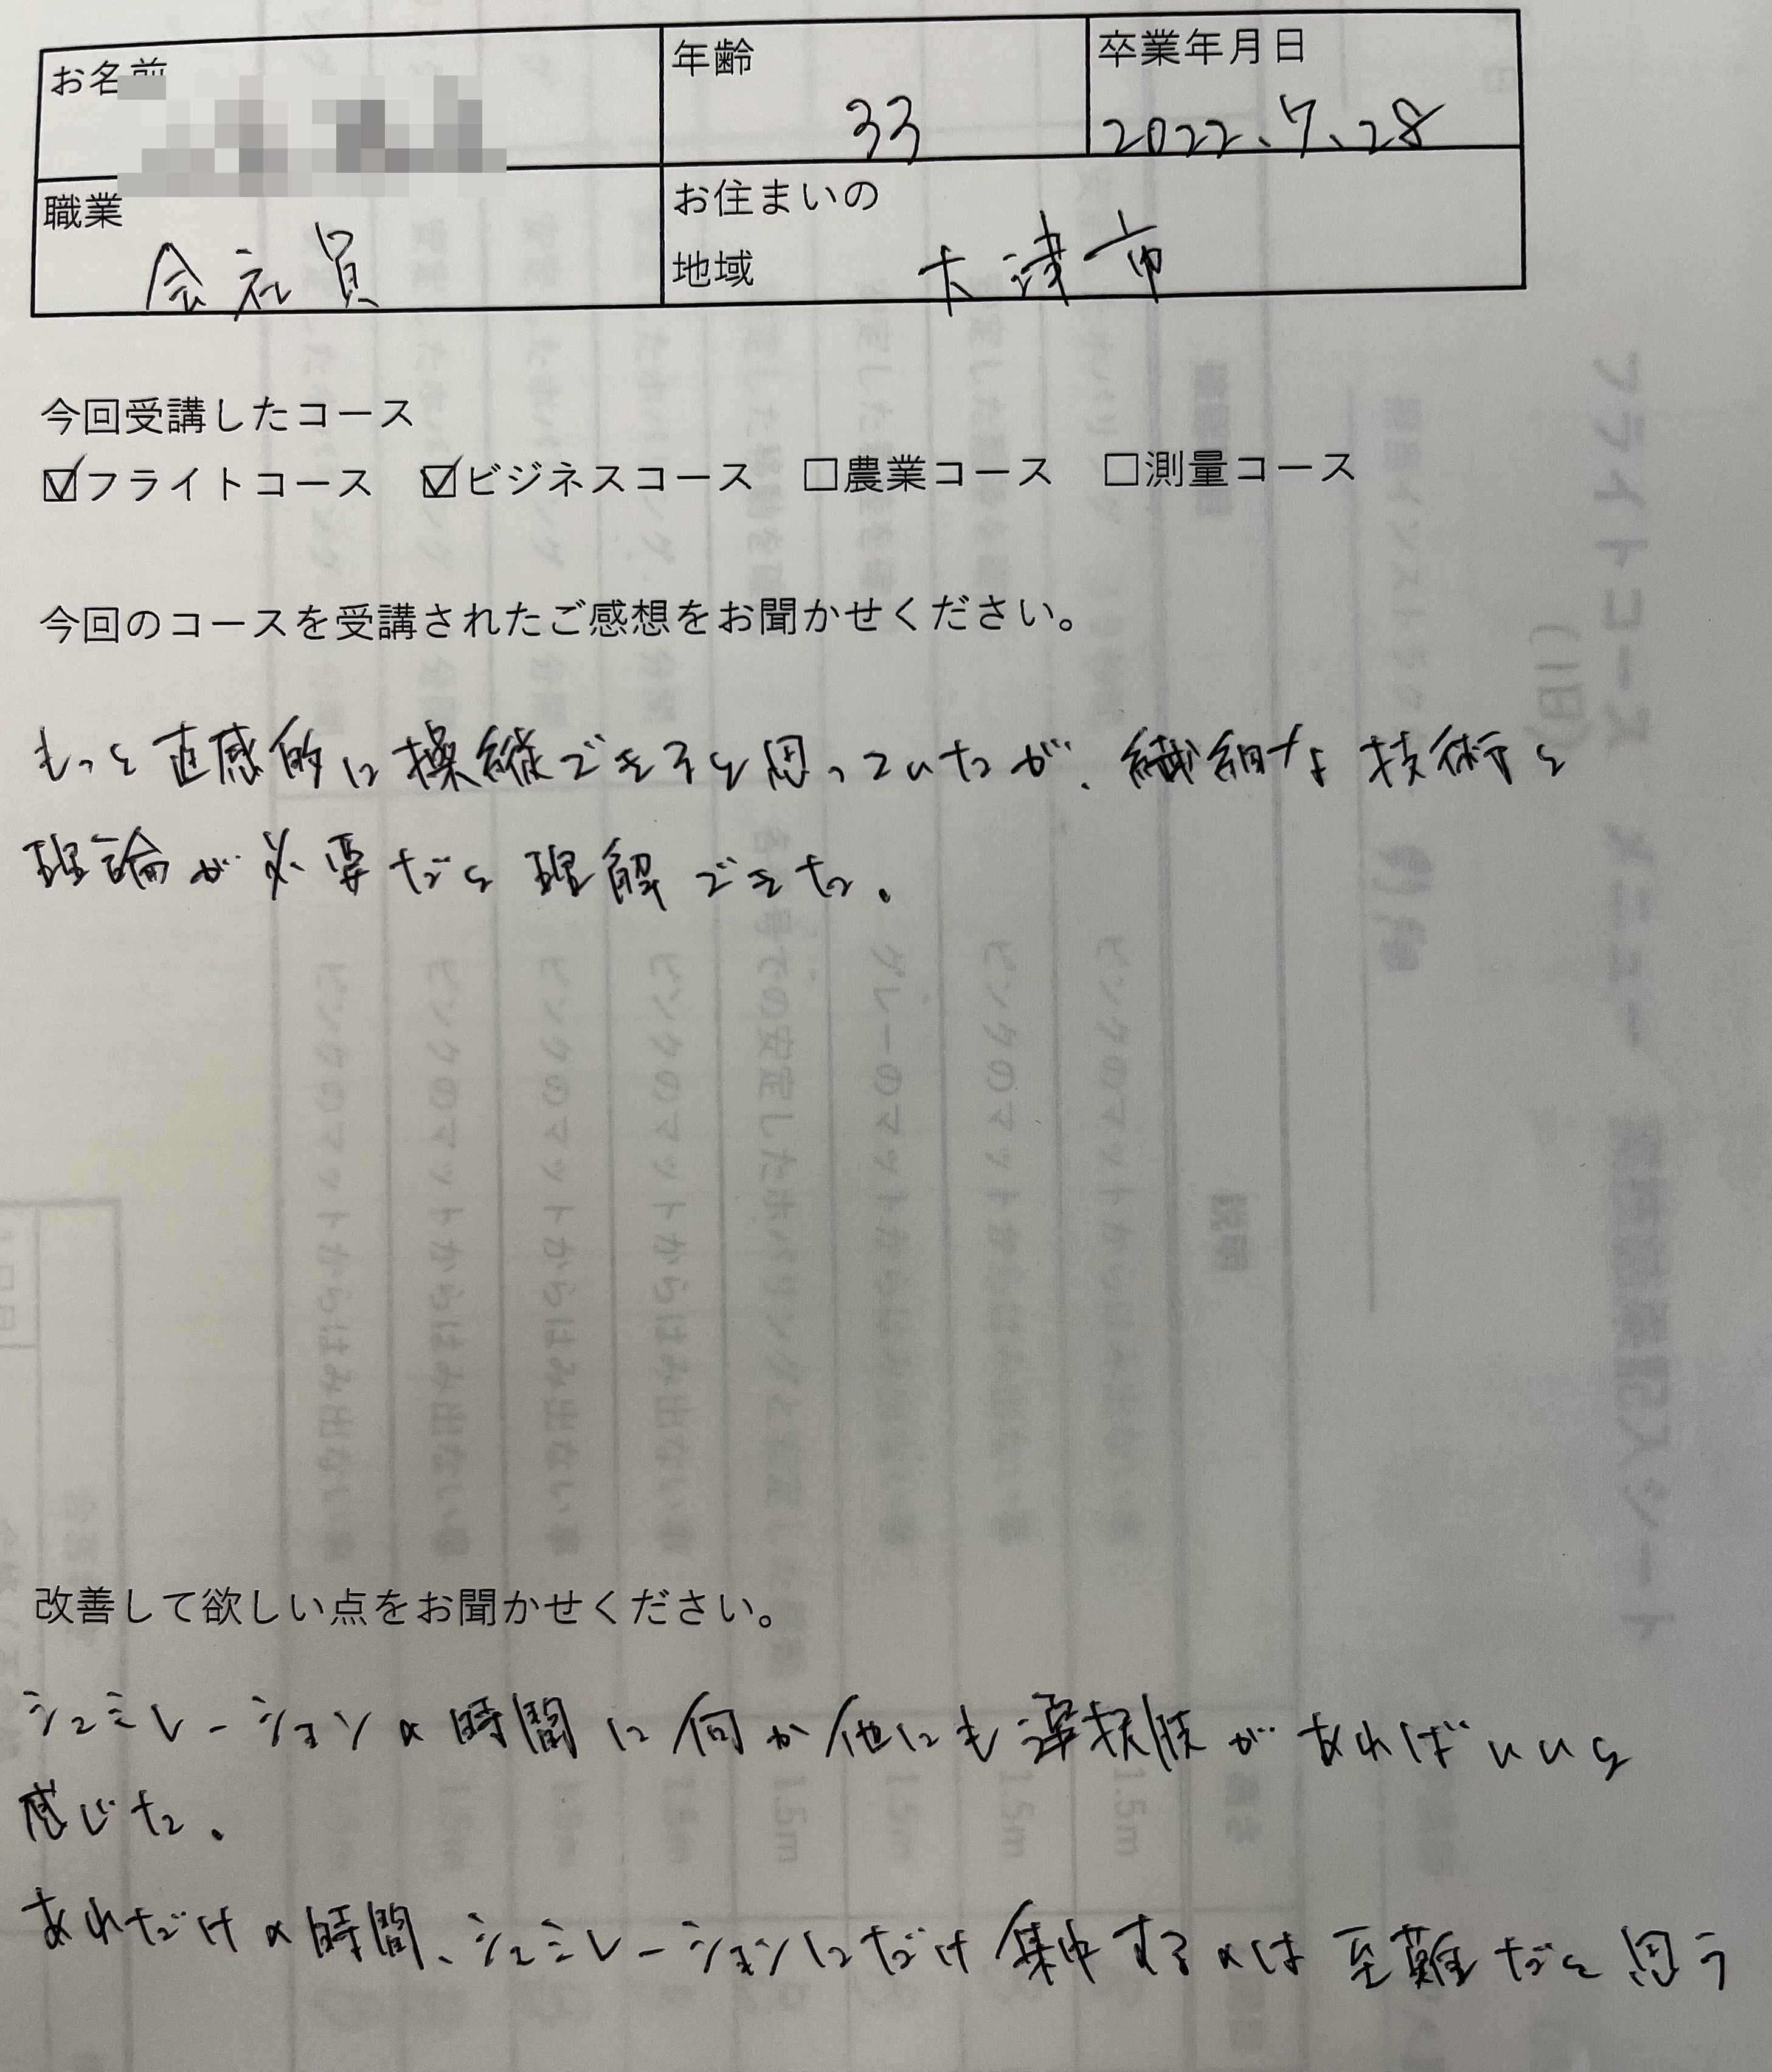 お名前
年齢
33
卒業年月日
2022.7.28
職業
会社員
お住まいの
地域
大津市
今回受講したコース
☑フライトコース ☑ビジネスコース □農業コース □測量コース
今回のコースを受講されたご感想をお聞かせください。
もっと直感的に操縦できると思っていたが、繊細な技術と
理論が必要だと理解できた。
改善して欲しい点をお聞かせください。
シュミレーションの時間に何か他にも選択肢があればいいと
感じた。
あれだけの時間、シュミレーションにだけ集中するのは至難だと思う